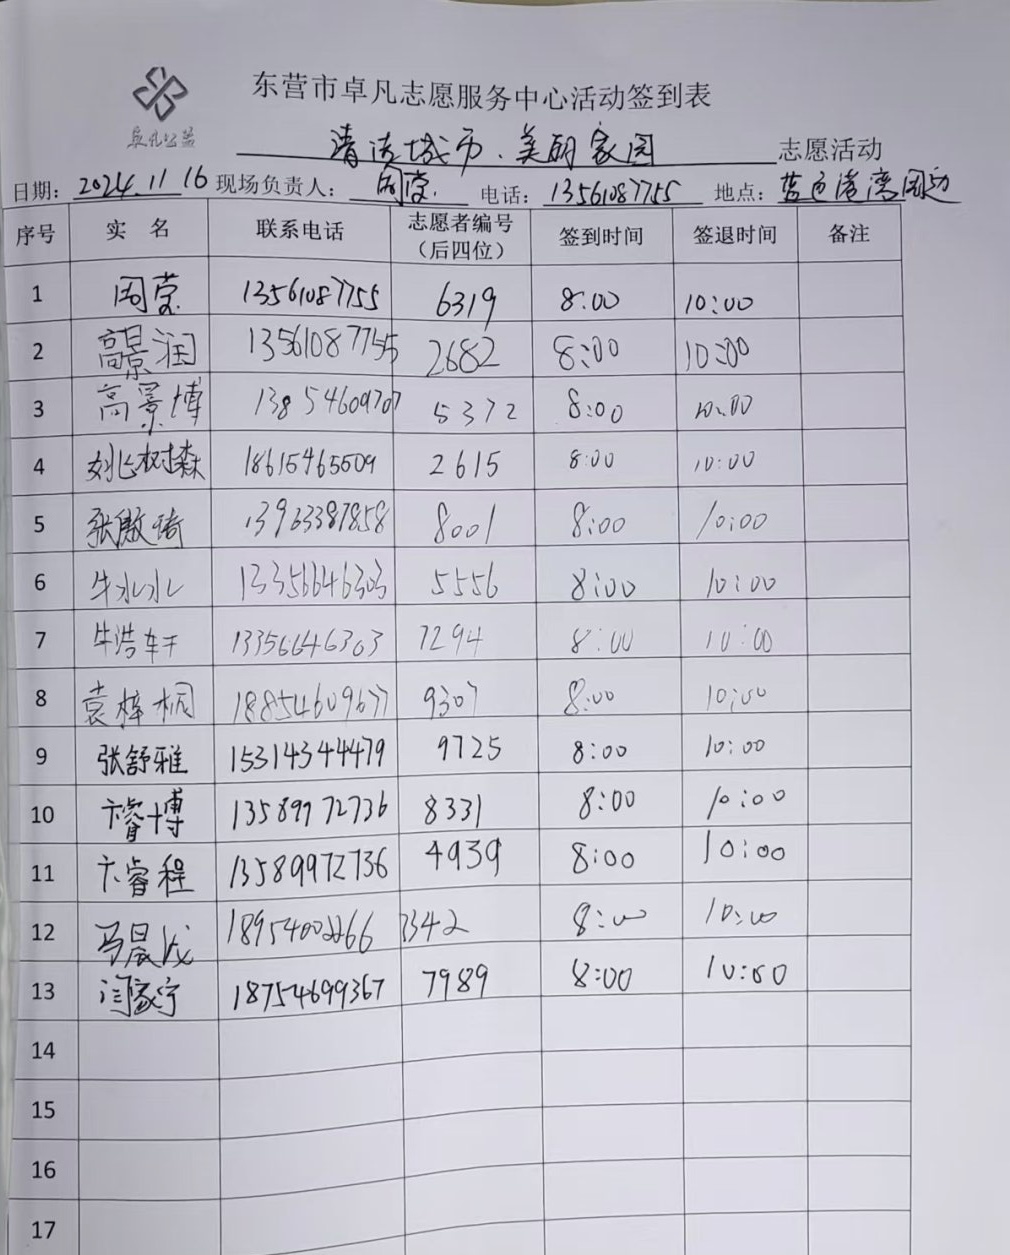 东营市卓凡志愿服务中心活动签到表
卓凡公益
清洁城市、美丽家园 志愿活动
日期: 2024.11.16 现场负责人: 周莹 电话: 13561087755 地点: 蓝色港湾周边
序号 实 名 联系电话 志愿者编号（后四位） 签到时间 签退时间 备注
1 周莹 13561087755 6319 8:00 10:00
2 高景润 13561087755 2682 8:00 10:00
3 高景博 13854609707 5372 8:00 10:00
4 刘树森 18615465509 2615 8:00 10:00
5 张傲琦 13963387858 8001 8:00 10:00
6 牛冰冰 13356646303 5556 8:00 10:00
7 牛浩轩 13356646303 7294 8:00 10:00
8 袁梓桐 18854609677 9307 8:00 10:00
9 张舒雅 15314344479 9725 8:00 10:00
10 卞睿博 13589972736 8331 8:00 10:00
11 卞睿程 13589972736 4939 8:00 10:00
12 马晨 3342 8:00 10:00
13 闫家宁 18754699367 7989 8:00 10:00
14
15
16
17